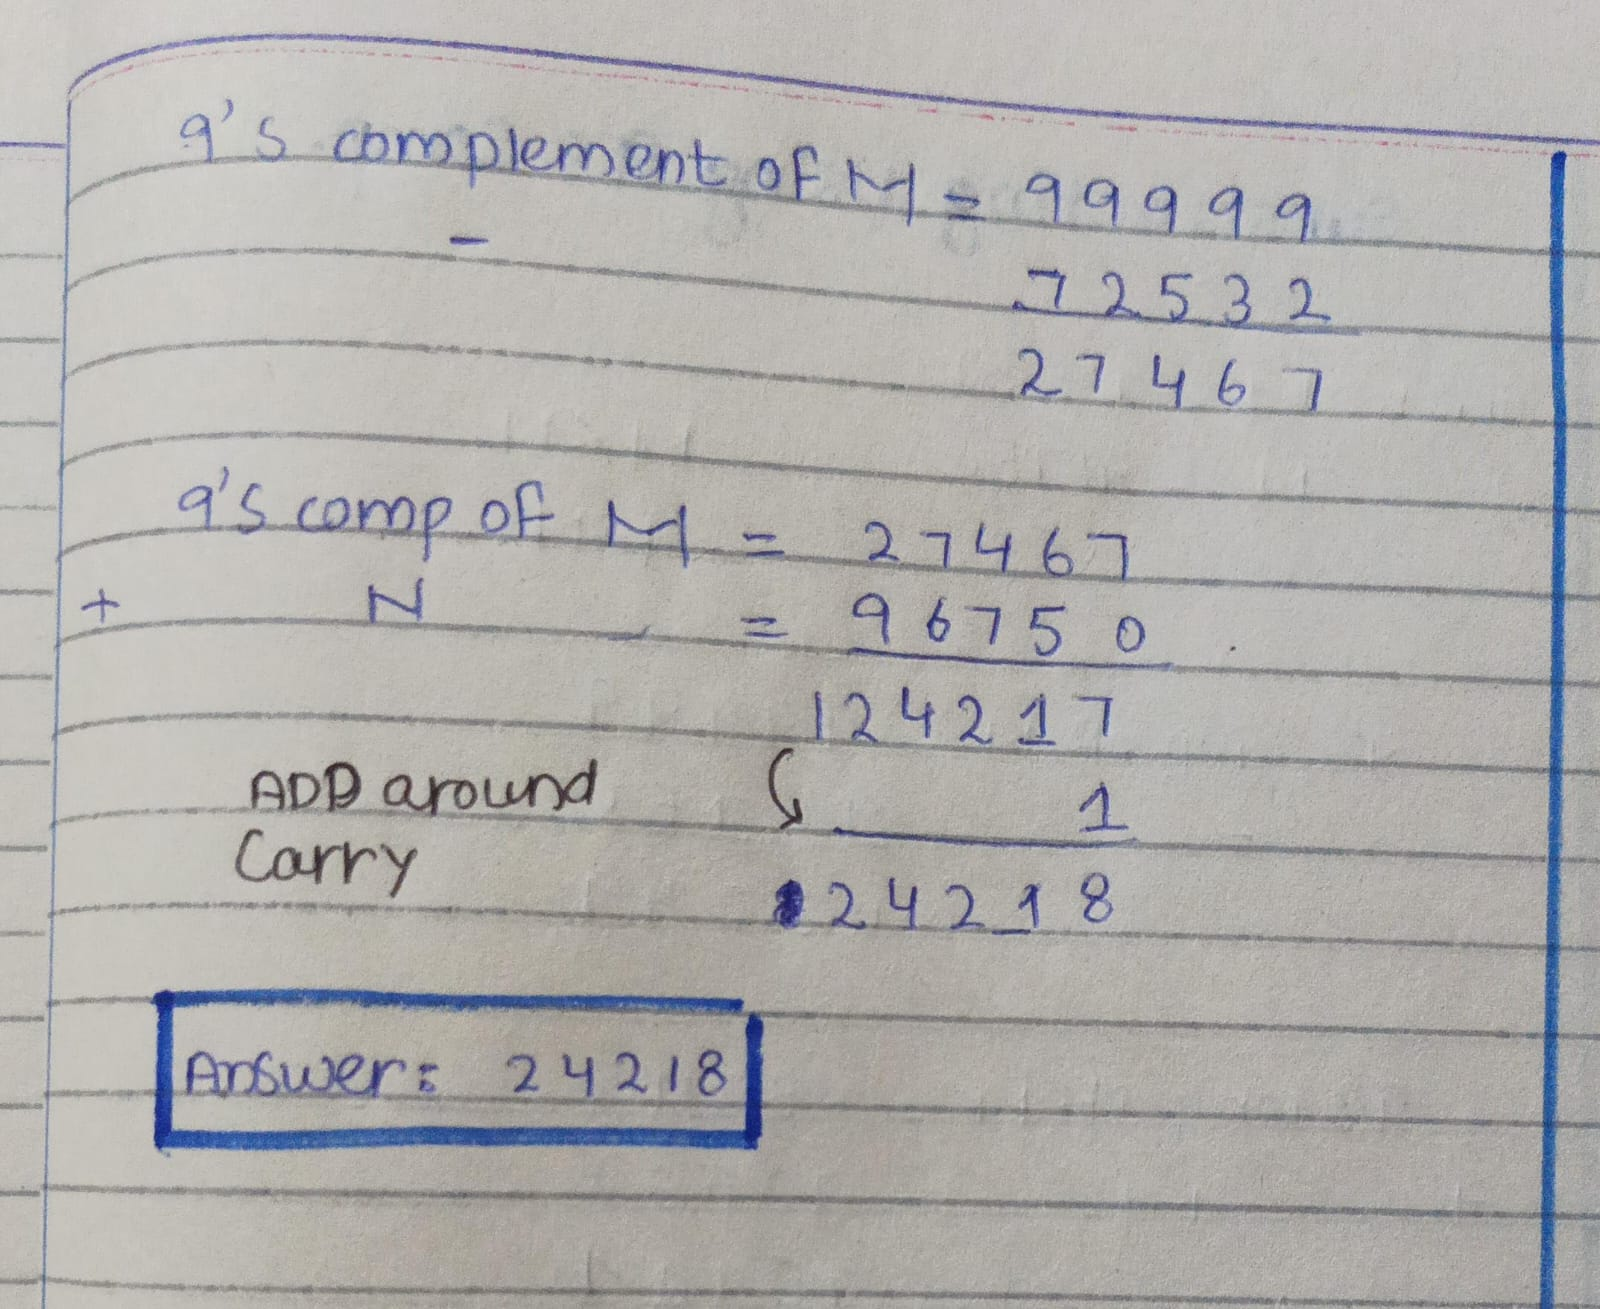 9's complement of M = 99999
- 72532
27467
9's comp of M = 27467
+ N = 96750
124217
ADD around 1
Carry
24218
Answer: 24218